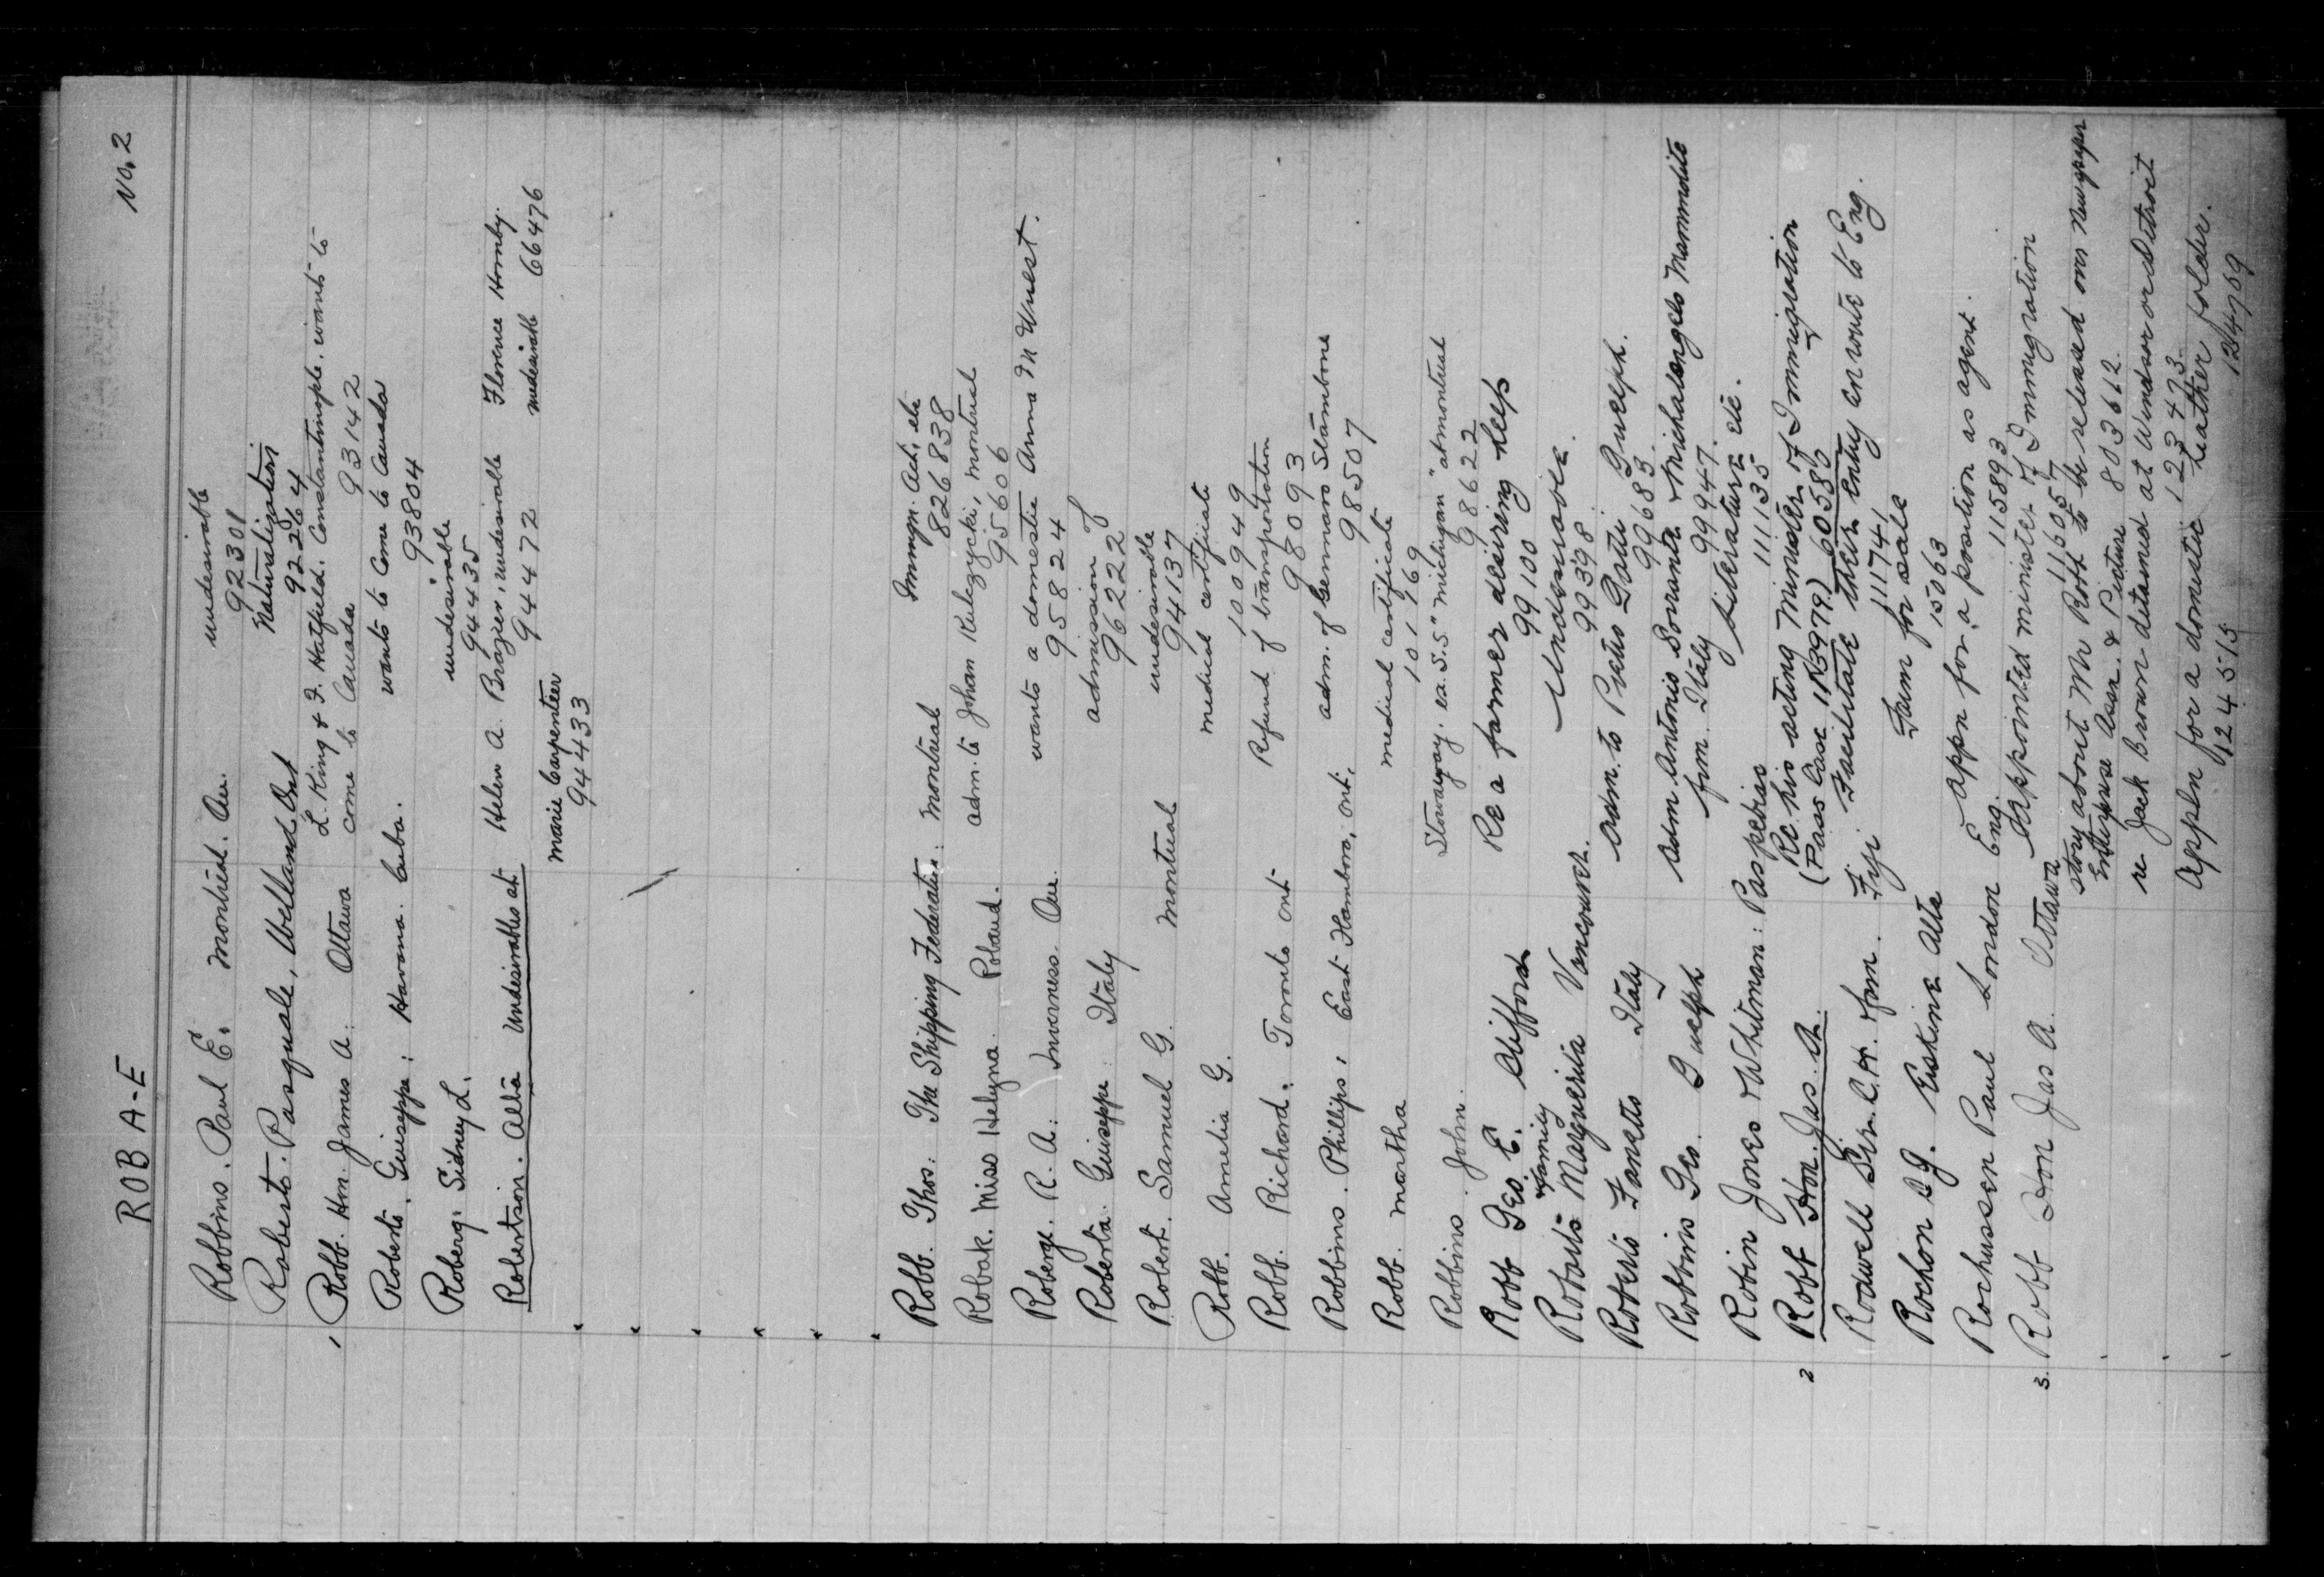 ROB A-E No. 2
Robbins. Paul E. Montreal. Que. undesirable
92301
Roberto. Pasquale, Welland Ont Naturalization
92264
1 Robb. Hon. James A. Ottawa L. King & F. Hatfield. Constantinople. wants to
come to Canada 93142
Roberts. Guiseppe: Havana. Cuba. wants to come to Canada
93804
Roberg. Sidney L. undesirable
94435
Robertson. Alta undesirables at Helen A. Brazier, undesirable Florence Hornby.
94472 undesirable 66476
Marie Carpenter
94433
Robb. Thos. The Shipping Federation: Montreal Immgn. Act, etc
826838
Robak. Miss Helyna. Poland. adm. to Johan Kulczycki, Montreal
95606
Roberge. R. A: Inverness. Que. wants a domestic Anna M Wuest.
95824
Roberta. Guiseppe: Italy admission of
96222
Robert. Samuel G. Montreal undesirable
94137
Robb. Amelia G. medical certificate
100949
Robb. Richard. Toronto Ont Refund of transportation
98093
Robbins. Phillips, East Flamboro, Ont. adm. of Gennaro Stambone
98507
Robb. Martha medical certificate
101969
Robbins. John. Stowaway. ex. S.S. "Michigan" at Montreal
98622
Robb Geo. E. Clifford Re a farmer desiring help
99100
& family
Robarts Marguerita Vancouver. Undesirable.
99398
Roberto Faneto Italy adm. to Pietro Dotti Guelph.
99683
Robbins Geo. Guelph adm. Antonio Sovrante & Michalangelo Mammolite
from Italy 99947.
Robin Jones & Whitman: Paspebiac Literature etc.
111135
2 Robb Hon. Jas. A. Re his acting Minister of Immigration
(Pass Case 113979) 605380
Rodwell Sir. C. H. from. Fiji Facilitate their entry enroute to Eng.
111741
Rochon C. G. Erskine Alta Farm for sale
15063
Rochussen Paul London Eng. Appn for a position as agent.
115893
3. Robb Hon Jas A. Ottawa Appointed minister of Immigration
116057
" story about Mr Robb to be released over Newspaper
Enterprise Assn. & Picture 803612
" re Jack Brown detained at Windsor or Detroit
123493
" Appln for a domestic Leather folder.
124515 124769